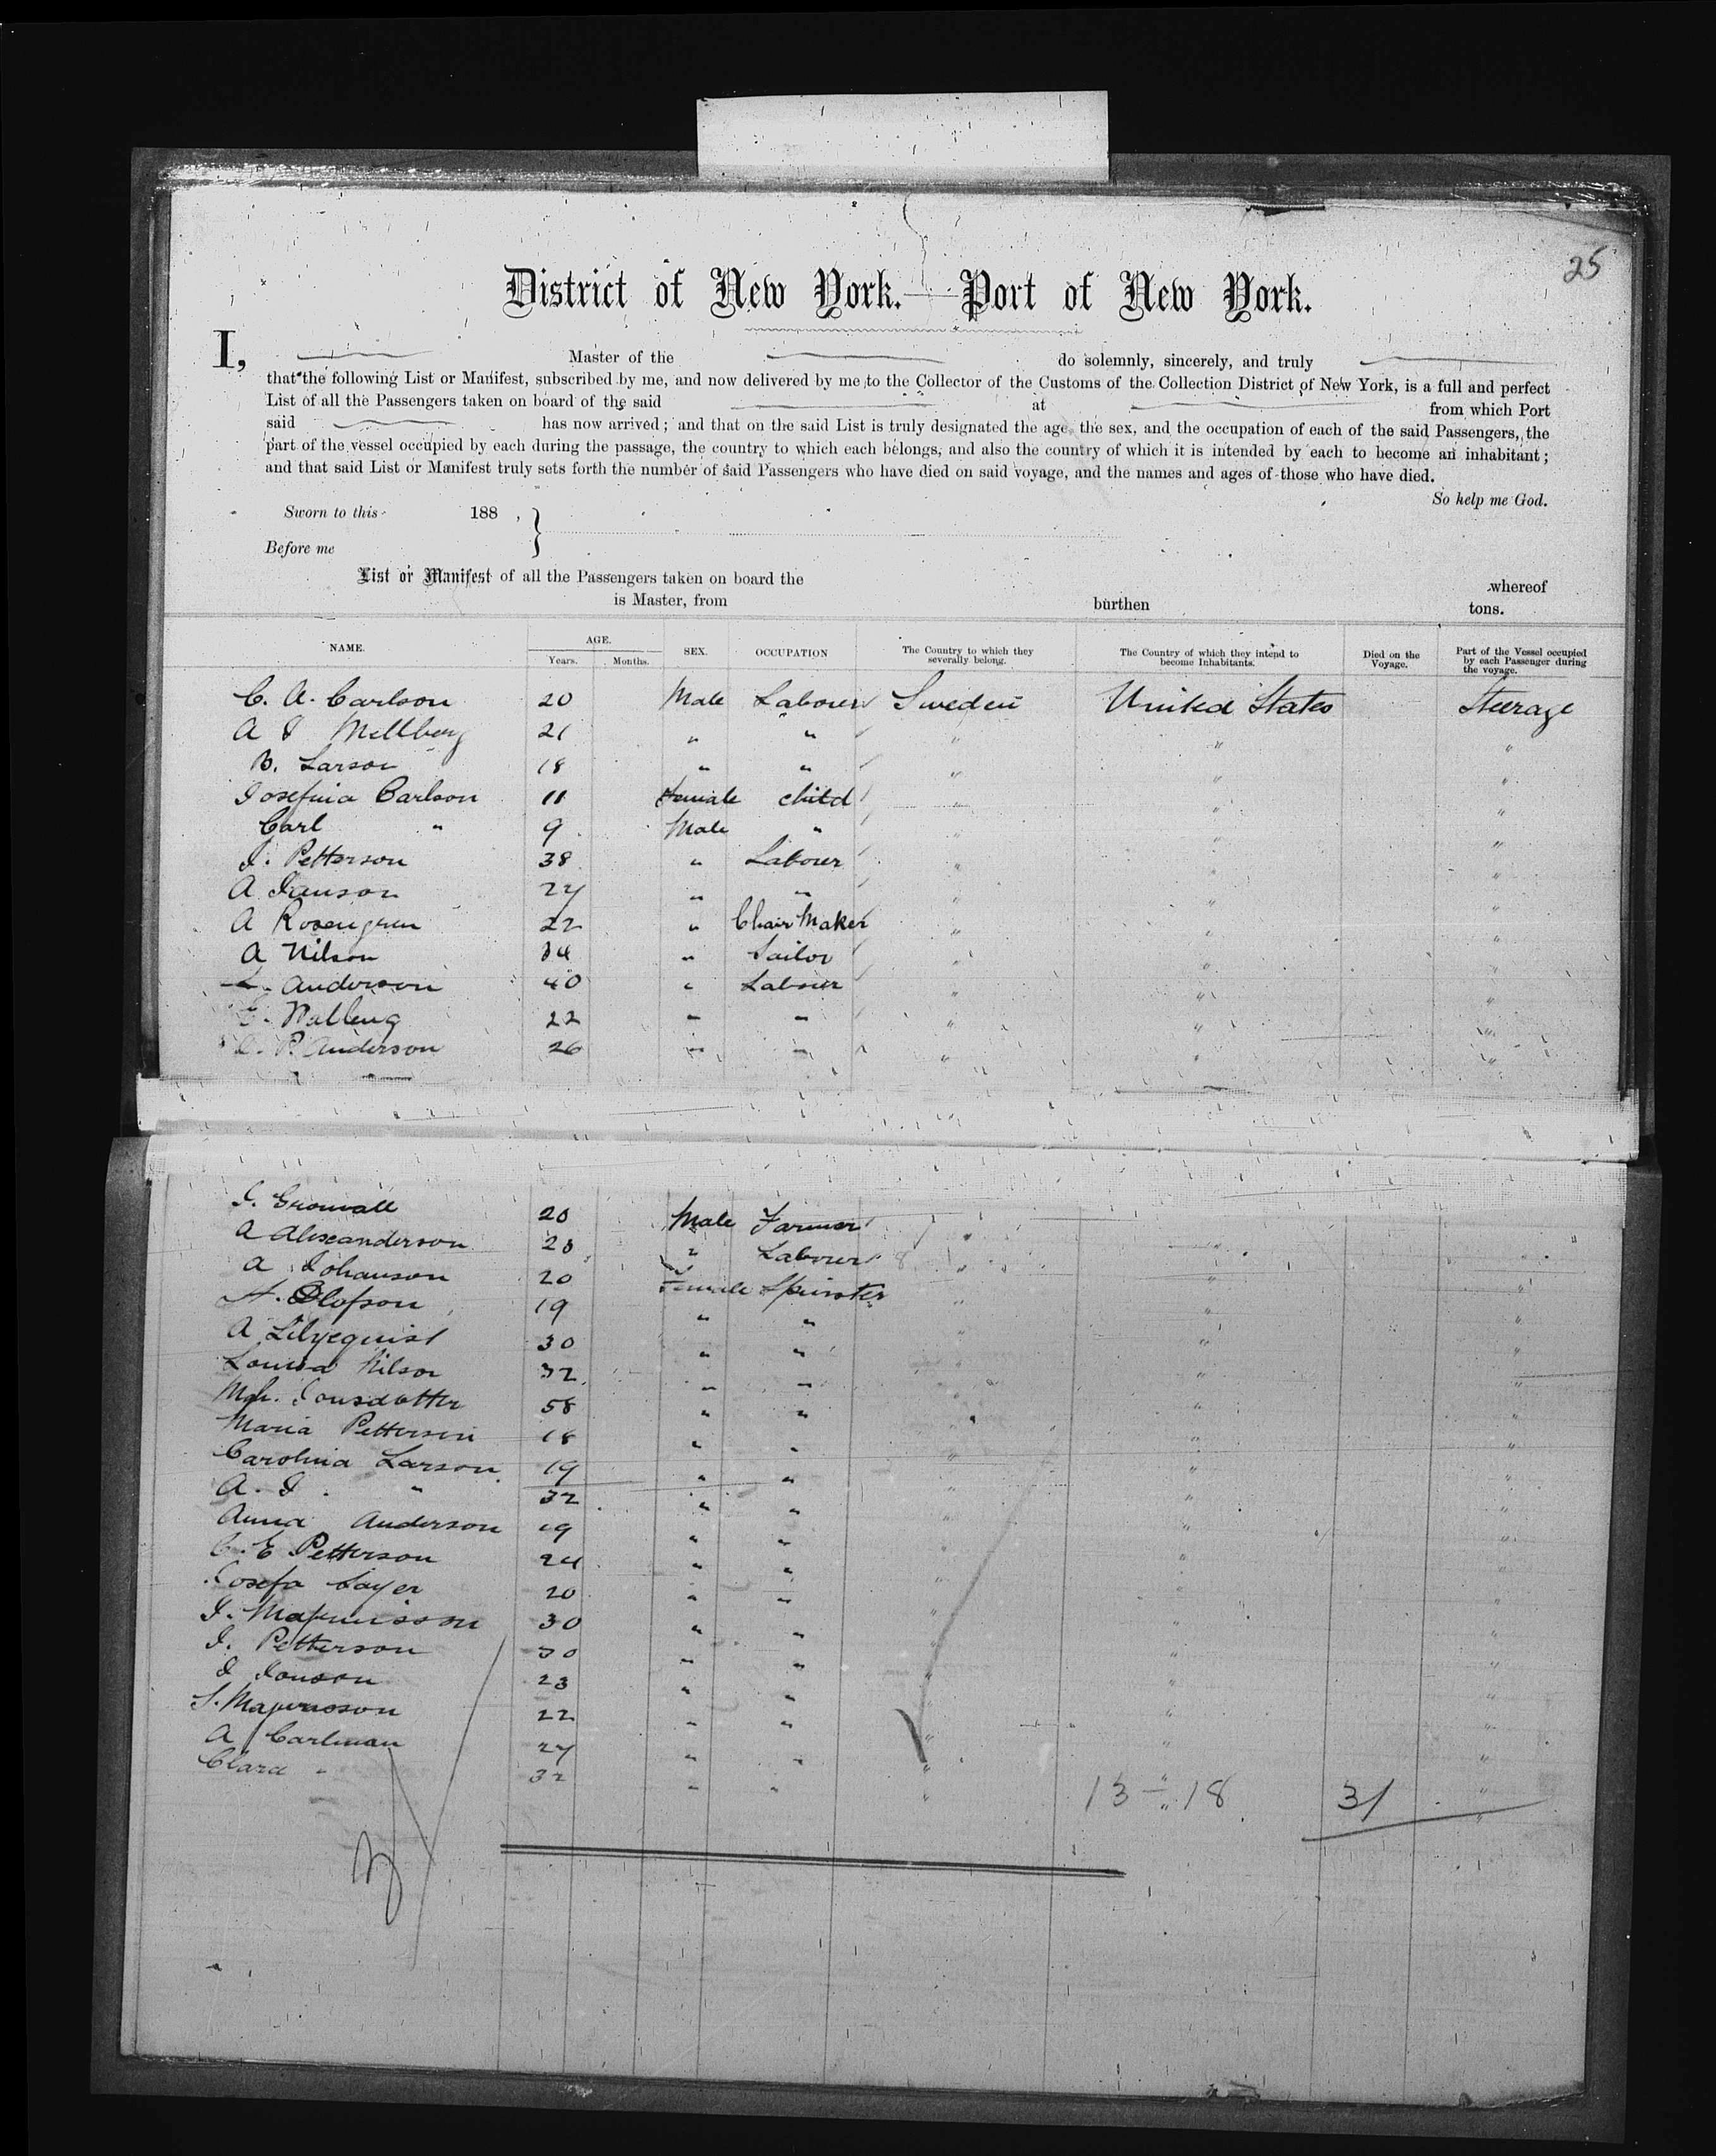 25
District of New York. Port of New York.
I, Master of the do solemnly, sincerely, and truly
that the following List or Manifest, subscribed by me, and now delivered by me to the Collector of the Customs of the Collection District of New York, is a full and perfect
List of all the Passengers taken on board of the said at from which Port
said has now arrived; and that on the said List is truly designated the age, the sex, and the occupation of each of the said Passengers, the
part of the vessel occupied by each during the passage, the country to which each belongs, and also the country of which it is intended by each to become an inhabitant;
and that said List or Manifest truly sets forth the number of said Passengers who have died on said voyage, and the names and ages of those who have died.
So help me God.
Sworn to this 188 ,
Before me
List or Manifest of all the Passengers taken on board the whereof
is Master, from burthen tons.
NAME. AGE. Years. Months. SEX. OCCUPATION The Country to which they severally belong. The Country of which they intend to become Inhabitants. Died on the Voyage. Part of the Vessel occupied by each Passenger during the voyage.
C. A. Carlson 20 Male Labourer Sweden United States Steerage
A Mellberg 21 " " " " "
B. Larson 18 " " " " "
Josefina Carlson 11 Female child " " "
Carl " 9 Male " " " "
J. Petterson 38 " Labourer " " "
A Janson 27 " " " " "
A Rosengren 22 " Chair Maker " " "
A Nilson 34 " Sailor " " "
L. Anderson 40 " Labourer " " "
22 " " " " "
P. Anderson 26 " " " " "
J. Gronvall 20 Male Farmer " " "
A Alexanderson 28 " Labourer " " "
A Johanson 20 Female Spinster " " "
A. Olofson 19 " " " " "
A Liljequist 30 " " " " "
Lovisa Nilson 32 " " " " "
Jonsdotter 58 " " " " "
Maria Petterson 18 " " " " "
Carolina Larson 19 " " " " "
A. J. " 32 " " " " "
Anna Anderson 19 " " " " "
C. E Petterson 24 " " " " "
Josefa 20 " " " " "
J. Magnusson 30 " " " " "
J. Petterson 30 " " " " "
J Jonson 23 " " " " "
S. Magnusson 22 " " " " "
A Carlman 27 " " " " "
Clara " 32 " " " " "
13 - 18 31